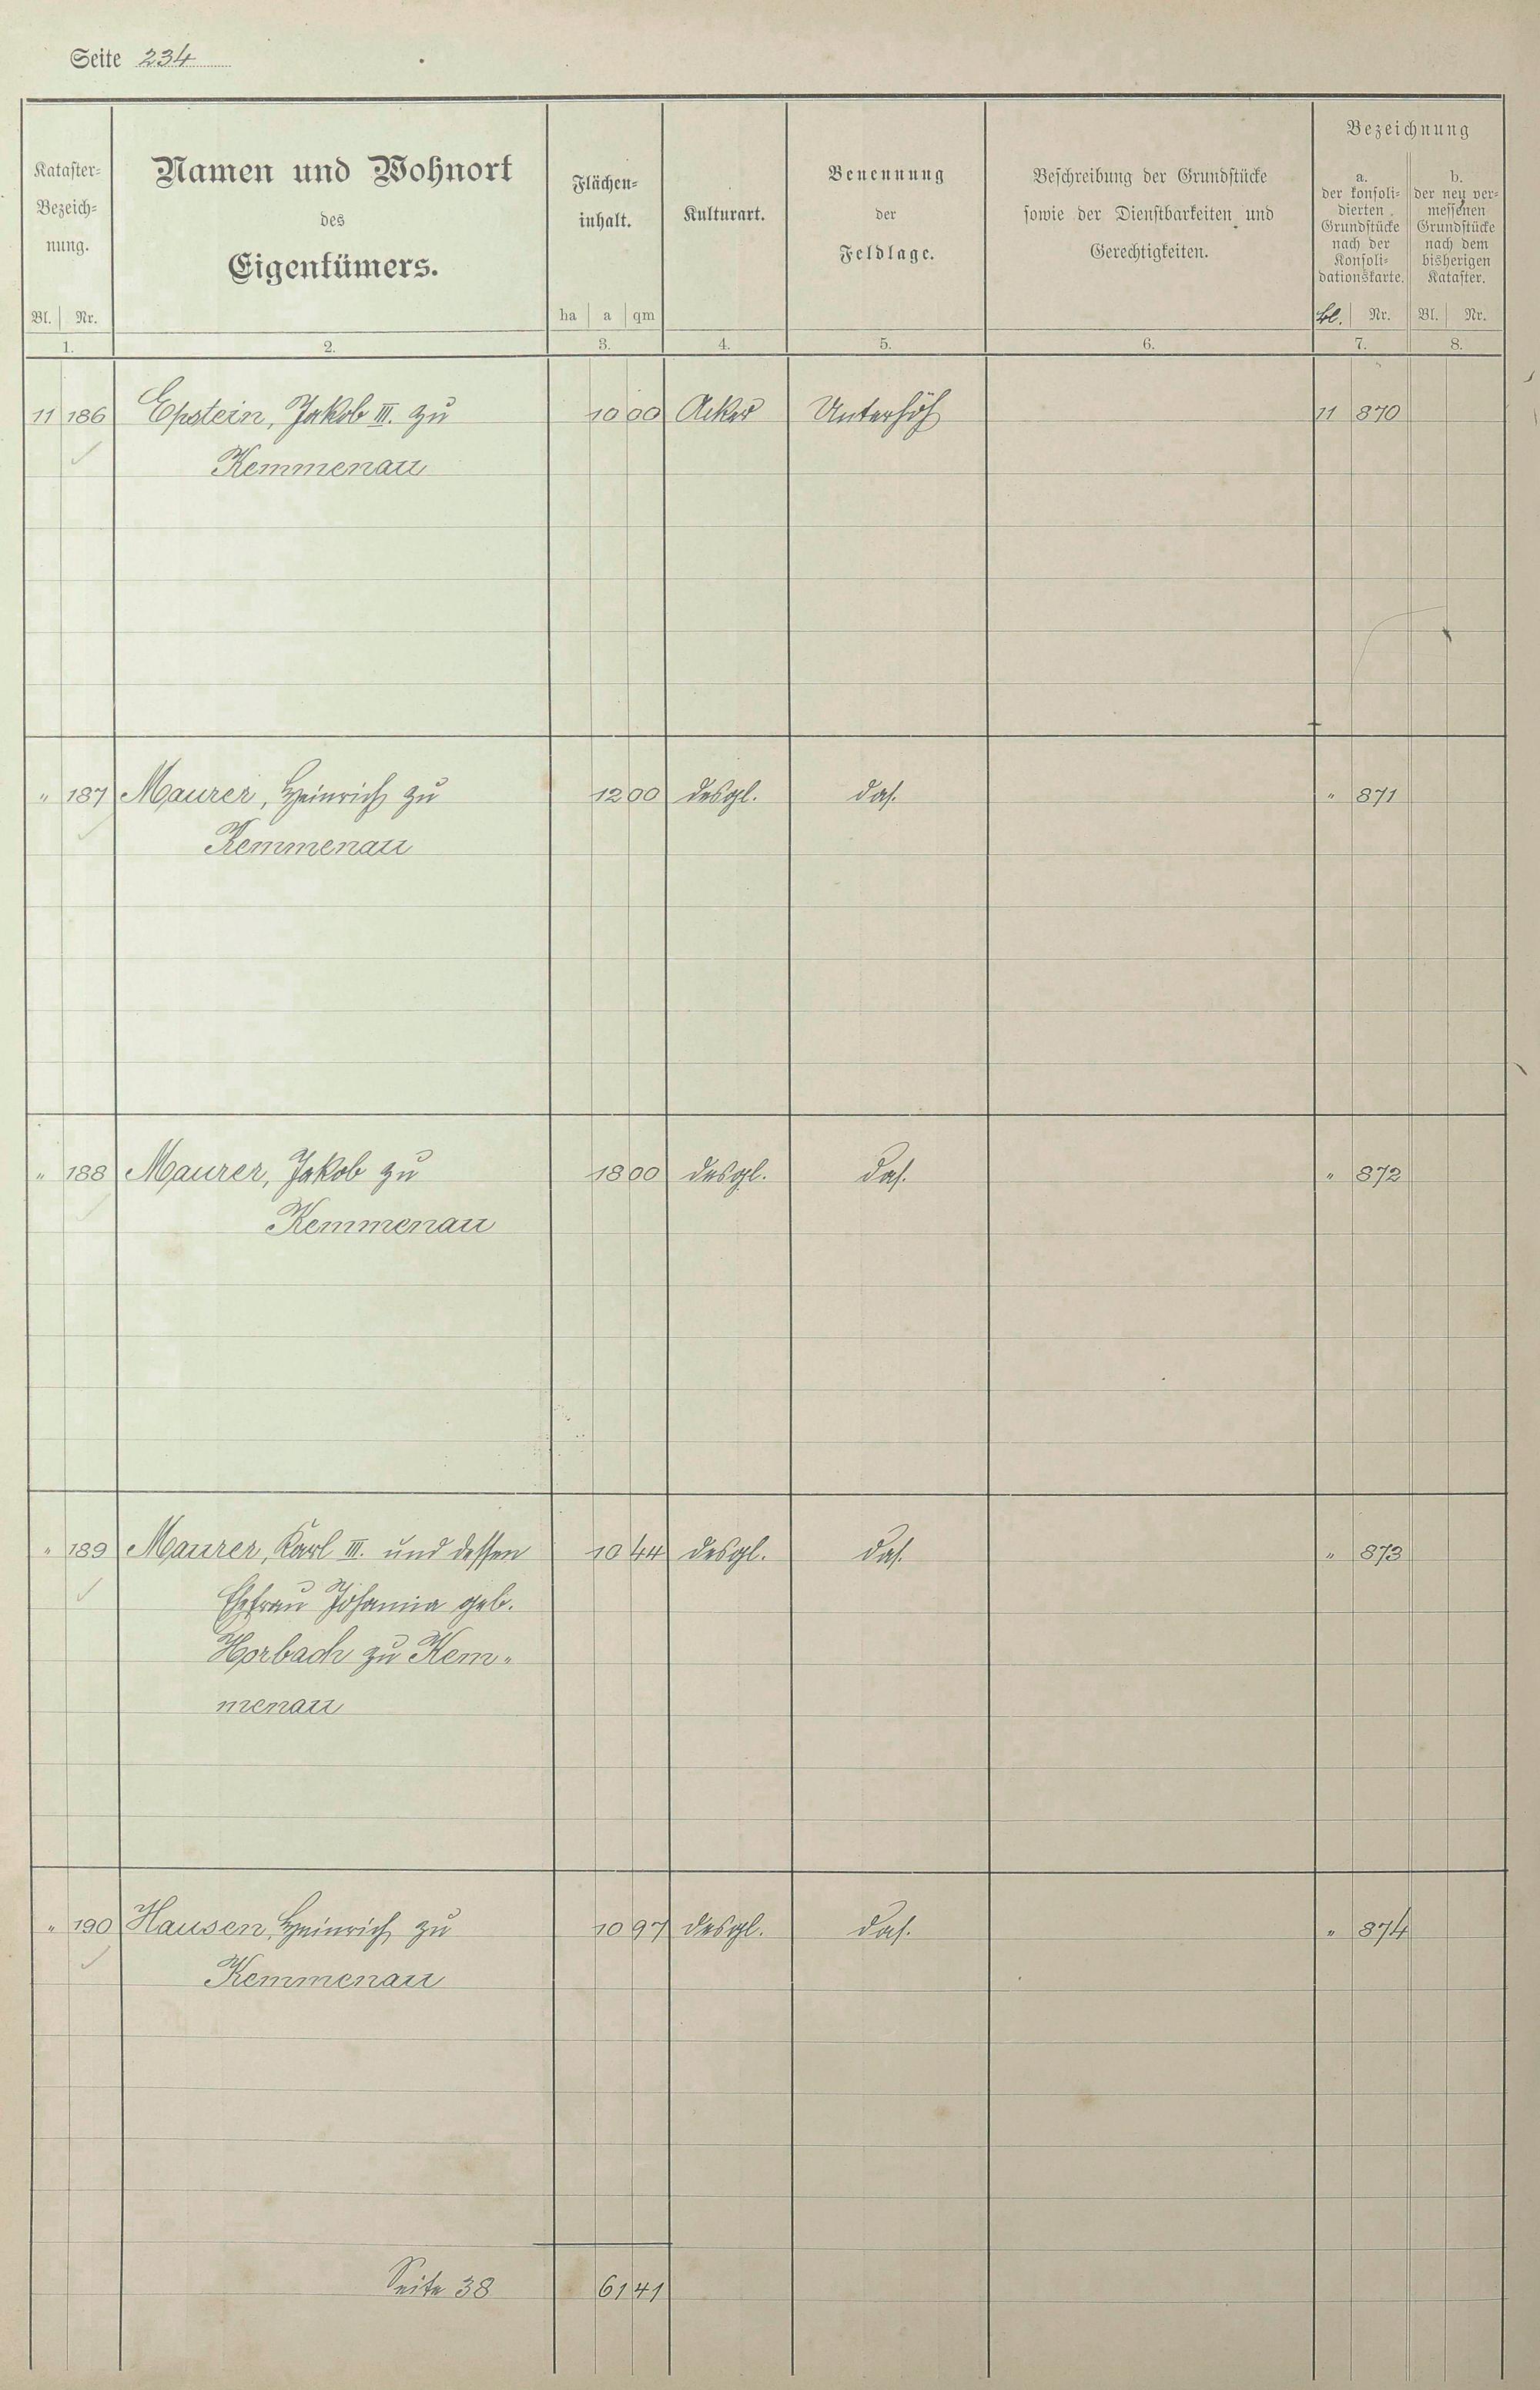 Seite 234
Kataster-
Bezeich-
nung.
Bl. Nr.
Namen und Wohnort
des
Eigentümers.
Flächen-
inhalt.
ha a qm
Kulturart.
Benennung
der
Feldlage.
Beschreibung der Grundstücke
sowie der Dienstbarkeiten und
Gerechtigkeiten.
Bezeichnung
a.
der konsoli-
dierten
Grundstücke
nach der
Konsoli-
dationskarte.
Bl. Nr.
b.
der neu ver-
messenen
Grundstücke
nach dem
bisherigen
Kataster.
Bl. Nr.
1. 2. 3. 4. 5. 6. 7. 8.
11 186 Epstein, Jakob III. zu 10 00 Acker Unterhöh 11 870
Kemmenau
" 187 Maurer, Heinrich zu 12 00 desgl. das. " 871
Kemmenau
" 188 Maurer, Jakob zu 18 00 desgl. das. " 872
Kemmenau
" 189 Maurer, Karl III. und dessen 10 44 desgl. das. " 873
Ehefrau Johanna geb.
Horbach zu Kem-
menau
" 190 Hausen, Heinrich zu 10 97 desgl. das. " 874
Kemmenau
Seite 38 61 41